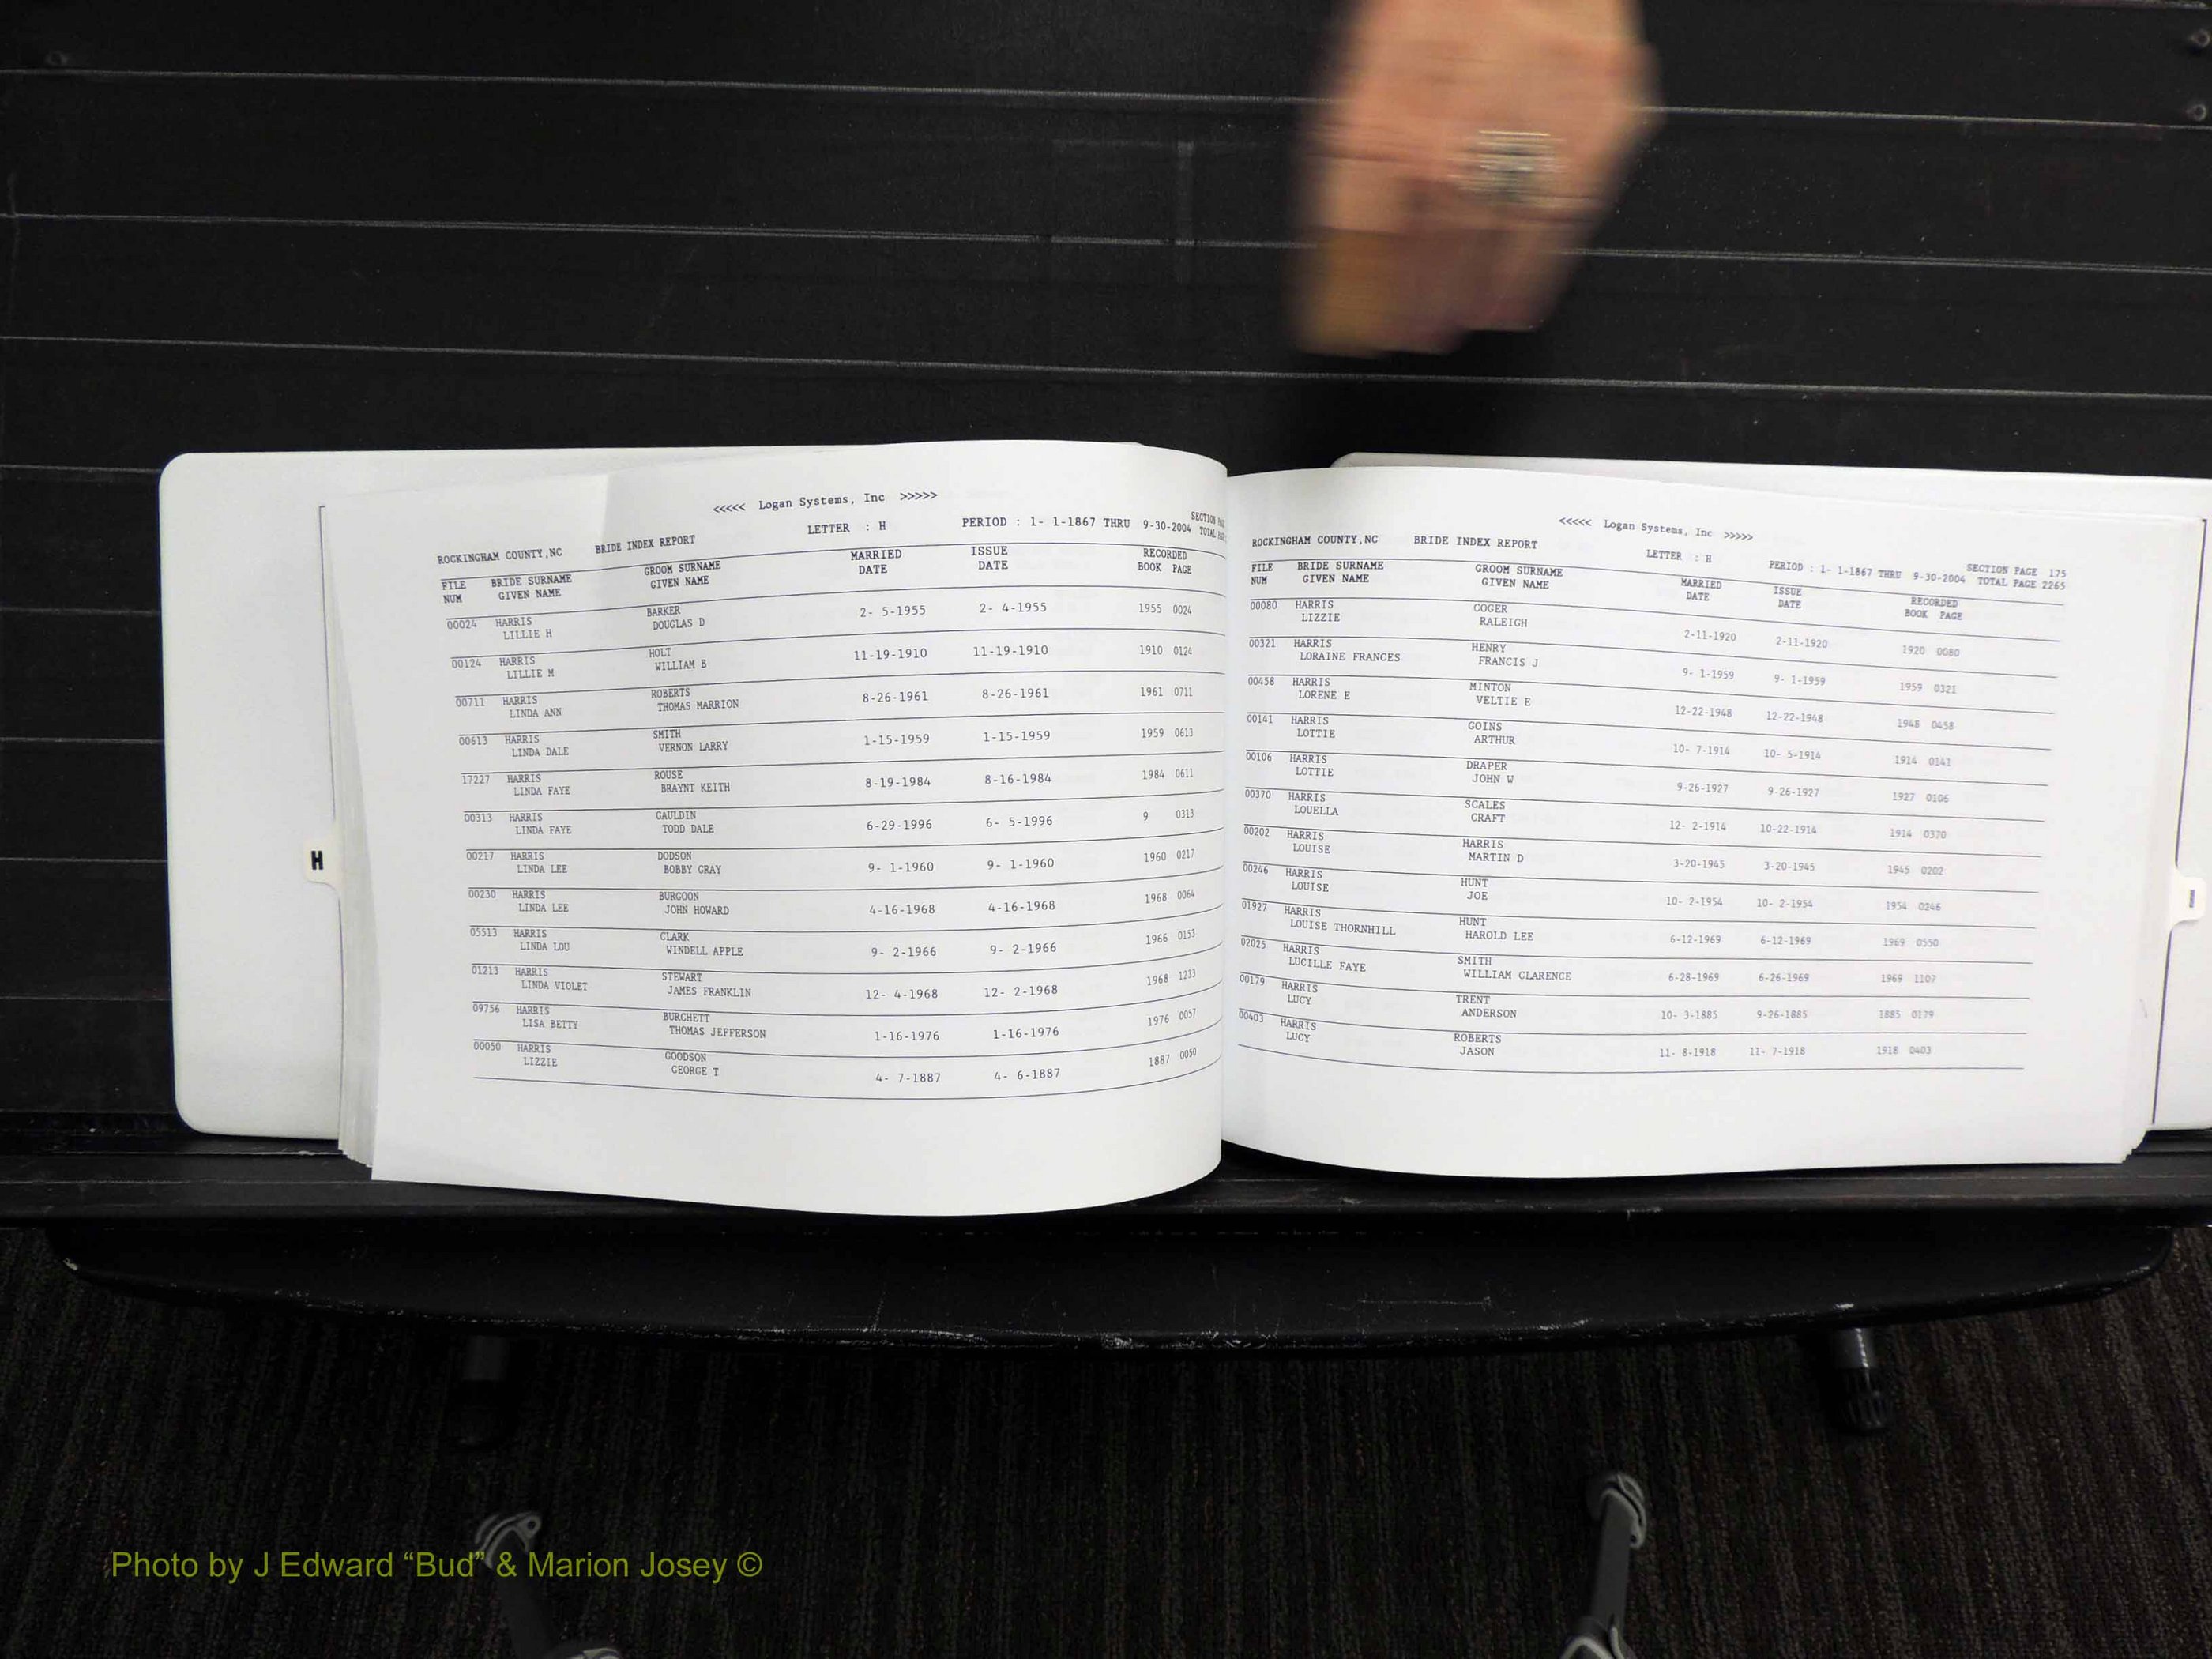 <<<<< Logan Systems, Inc >>>>>
ROCKINGHAM COUNTY,NC BRIDE INDEX REPORT LETTER : H PERIOD : 1- 1-1867 THRU 9-30-2004 SECTION
TOTAL
FILE BRIDE SURNAME GROOM SURNAME MARRIED ISSUE RECORDED
NUM GIVEN NAME GIVEN NAME DATE DATE BOOK PAGE
00024 HARRIS BARKER 2- 5-1955 2- 4-1955 1955 0024
LILLIE H DOUGLAS D
00124 HARRIS HOLT 11-19-1910 11-19-1910 1910 0124
LILLIE M WILLIAM B
00711 HARRIS ROBERTS 8-26-1961 8-26-1961 1961 0711
LINDA ANN THOMAS MARRION
00613 HARRIS SMITH 1-15-1959 1-15-1959 1959 0613
LINDA DALE VERNON LARRY
17227 HARRIS ROUSE 8-19-1984 8-16-1984 1984 0611
LINDA FAYE BRAYNT KEITH
00313 HARRIS GAULDIN 6-29-1996 6- 5-1996 9 0313
LINDA FAYE TODD DALE
00217 HARRIS DODSON 9- 1-1960 9- 1-1960 1960 0217
LINDA LEE BOBBY GRAY
00230 HARRIS BURGOON 4-16-1968 4-16-1968 1968 0064
LINDA LEE JOHN HOWARD
05513 HARRIS CLARK 9- 2-1966 9- 2-1966 1966 0153
LINDA LOU WINDELL APPLE
01213 HARRIS STEWART 12- 4-1968 12- 2-1968 1968 1233
LINDA VIOLET JAMES FRANKLIN
09756 HARRIS BURCHETT 1-16-1976 1-16-1976 1976 0057
LISA BETTY THOMAS JEFFERSON
00050 HARRIS GOODSON 4- 7-1887 4- 6-1887 1887 0050
LIZZIE GEORGE T
H
<<<<< Logan Systems, Inc >>>>>
ROCKINGHAM COUNTY,NC BRIDE INDEX REPORT LETTER : H PERIOD : 1- 1-1867 THRU 9-30-2004 SECTION PAGE 175
TOTAL PAGE 2265
FILE BRIDE SURNAME GROOM SURNAME MARRIED ISSUE RECORDED
NUM GIVEN NAME GIVEN NAME DATE DATE BOOK PAGE
00080 HARRIS COGER 2-11-1920 2-11-1920 1920 0080
LIZZIE RALEIGH
00321 HARRIS HENRY 9- 1-1959 9- 1-1959 1959 0321
LORAINE FRANCES FRANCIS J
00458 HARRIS MINTON 12-22-1948 12-22-1948 1948 0458
LORENE E VELTIE E
00141 HARRIS GOINS 10- 7-1914 10- 5-1914 1914 0141
LOTTIE ARTHUR
00106 HARRIS DRAPER 9-26-1927 9-26-1927 1927 0106
LOTTIE JOHN W
00370 HARRIS SCALES 12- 2-1914 10-22-1914 1914 0370
LOUELLA CRAFT
00202 HARRIS HARRIS 3-20-1945 3-20-1945 1945 0202
LOUISE MARTIN D
00246 HARRIS HUNT 10- 2-1954 10- 2-1954 1954 0246
LOUISE JOE
01927 HARRIS HUNT 6-12-1969 6-12-1969 1969 0550
LOUISE THORNHILL HAROLD LEE
02025 HARRIS SMITH 6-28-1969 6-26-1969 1969 1107
LUCILLE FAYE WILLIAM CLARENCE
00179 HARRIS TRENT 10- 3-1885 9-26-1885 1885 0179
LUCY ANDERSON
00403 HARRIS ROBERTS 11- 8-1918 11- 7-1918 1918 0403
LUCY JASON
I
Photo by J Edward “Bud” & Marion Josey ©